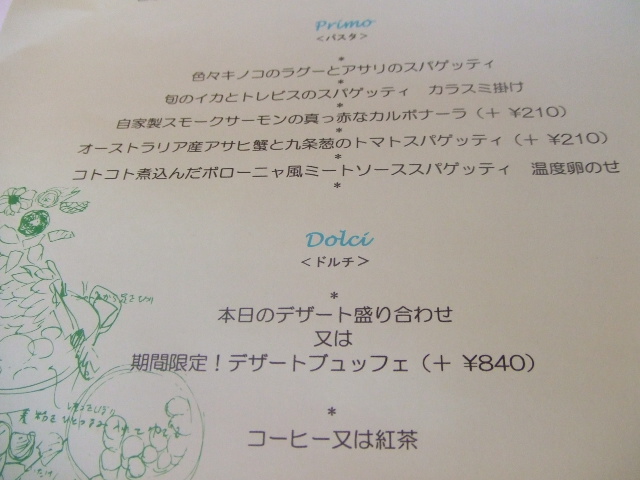 Primo
<パスタ>
*
色々キノコのラグーとアサリのスパゲッティ
*
旬のイカとトレビスのスパゲッティ　カラスミ掛け
*
自家製スモークサーモンの真っ赤なカルボナーラ（+ ¥210）
*
オーストラリア産アサヒ蟹と九条葱のトマトスパゲッティ（+ ¥210）
*
コトコト煮込んだボローニャ風ミートソーススパゲッティ　温度卵のせ
*
Dolci
<ドルチ>
*
本日のデザート盛り合わせ
又は
期間限定！デザートブュッフェ（+ ¥840）
*
コーヒー又は紅茶